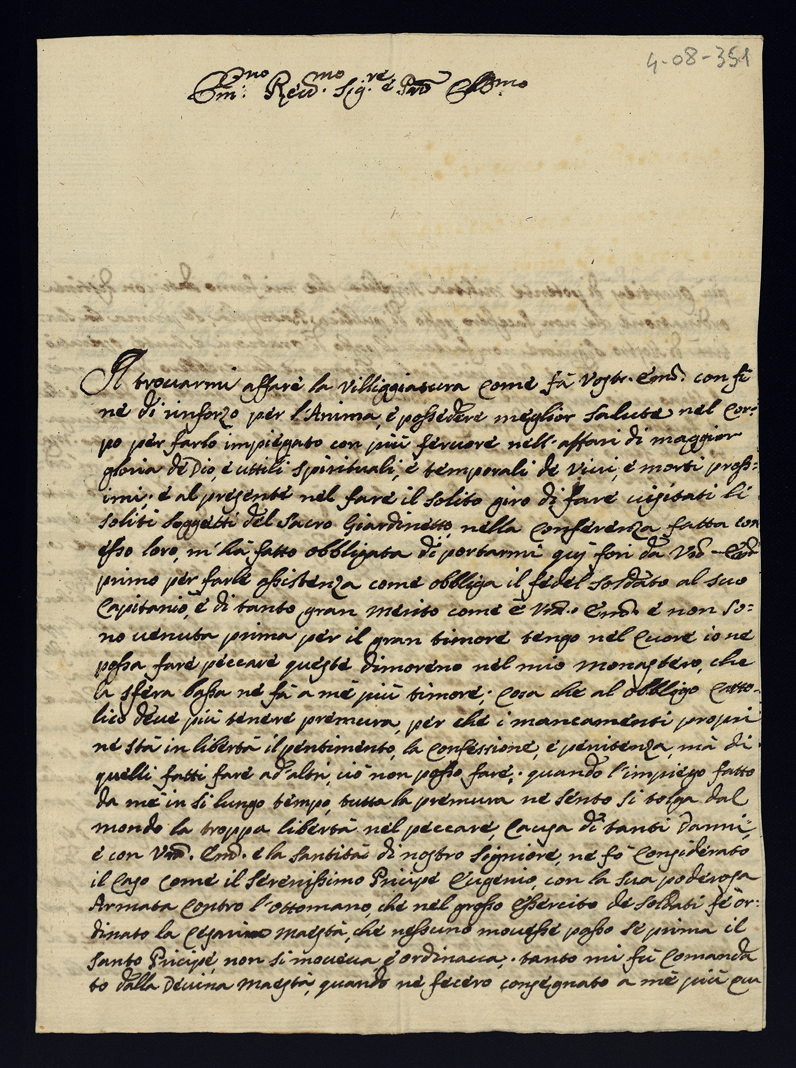 4-08-351
Em:mo Reu.mo Sig.re e Prõ
Il trouarmi affare la Villiggiatura Come fà Vostr. Emã. con fi
ne di rinforzo per l'Anima, è possedere meglior Salute nel Cor=
po per farlo impiegato con più feruore nell'affari di maggior
gloria de Dio, è uttili Spirituali, è temporali de Viui, è morti pross=
imi, è al presente nel fare il Solito giro di fare uisitati li
Soliti Soggetti del Sacro Giardinetto, nella Conferenza fatta con
esso loro, m'hà fatto obbligata di portarmi quì fori da Vrã. Emã
primo per farle assistenza come obbliga il fedel Soldato al suo
Capitanio, è di tanto gran Merito come è Vrã. Emã. è non So=
no uenuta prima per il gran timore tengo nel Cuore io ne
possa fare peccare queste dimoreno nel mio Monastero, che
la sfera bassa ne fà a mè più timore; Cosa che al obbligo Catto=
lico deue più tenere premura, per che i mancamenti proprii
ne stà in libertà il pentimento, la Confessione, è penitenza, mà di
quelli fatti fare ad'altri, ciò non posso fare, quando l'impiego fatto
da mè in sì lungo tempo, tutta la premura ne Sento si tolga dal
mondo la troppa libertà nel peccare, Causa di tanti Danni,
è con Vrã. Emã. è la Santità di nostro Signiore, ne fò Considerato
il Caso come il Serenissimo Pricipe Eugenio, con la sua poderosa
Armata Contro l'Ottomano, che nel grosso Essercito de Soldati fè or=
dinato la Maestà, che nessuno mouesse passo se prima il
Santo Pricipe, non si moueua è ordinaua, tanto mi fù Comanda
to dalla Deuina Maestà, quando ne fecero consegnato a mè più